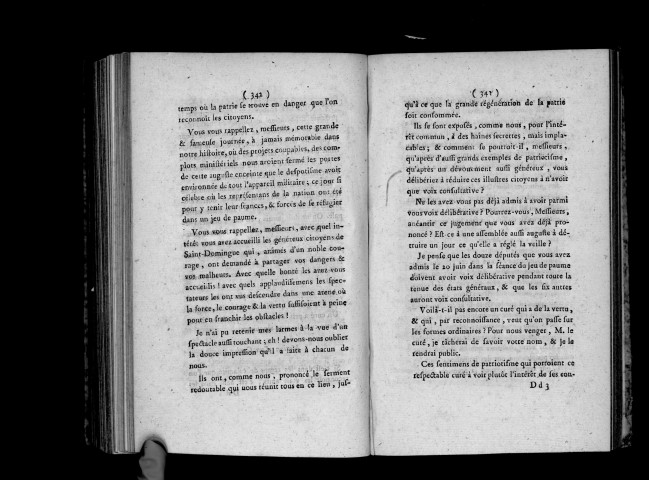 ( 342 )
temps où la patrie se trouve en danger que l'on
reconnoît les citoyens.
Vous vous rappellez, messieurs, cette grande
& fameuse journée, à jamais mémorable dans
notre histoire, où des projets coupables, des com-
plots ministériels nous avoient fermé les portes
de cette auguste enceinte que le despotisme avoit
environnée de tout l'appareil militaire; ce jour si
célebre où les représentans de la nation ont été
pour y tenir leur séances, & forcés de se réfugier
dans un jeu de paume.
Vous vous rappellez, messieurs, avec quel in-
térêt vous avez accueilli les généreux citoyens de
Saint-Domingue qui, animés d'un noble cou-
rage, ont demandé à partager vos dangers &
vos malheurs. Avec quelle bonté les avez vous
accueillis! avec quels applaudissemens les spec-
tateurs les ont vus descendre dans une arene où
la force, le courage & la vertu suffisoient à peine
pour en franchir les obstacles!
Je n'ai pu retenir mes larmes à la vue d'un
spectacle aussi touchant; eh! devons-nous oublier
la douce impression qu'il a faite à chacun de
nous.
Ils ont, comme nous, prononcé le serment
redoutable qui nous réunit tous en ce lieu, jus-
( 341 )
qu'à ce que la grande régénération de la patrie
soit consommée.
Ils se sont exposés, comme nous, pour l'inté-
rêt commun, à des haines secrettes, mais impla-
cables; & comment se pourroit-il, messieurs,
qu'après d'aussi grands exemples de patriotisme,
qu'après un dévouement aussi généreux, vous
délibériez à réduire ces illustres citoyens à n'avoir
que voix consultative?
Ne les avez vous pas déjà admis à avoir parmi
vous voix délibérative? Pourrez-vous, Messieurs,
anéantir ce jugement que vous avez déjà pro-
noncé? Est ce à une assemblée aussi auguste à dé-
truire un jour ce qu'elle a réglé la veille?
Je pense que les douze députés que vous avez
admis le 20 juin dans la séance du jeu de paume
doivent avoir voix délibérative pendant toute la
tenue des états généraux, & que les six autres
auront voix consultative.
Voilà-t-il pas encore un curé qui a de la vertu,
& qui, par reconnoissance, veut qu'on passe sur
les formes ordinaires? Pour nous venger, M. le
curé, je tâcherai de savoir votre nom, & je le
rendrai public.
Ces sentimens de patriotisme qui portoient ce
respectable curé à voir plutôt l'intérêt de ses con-
D d 3